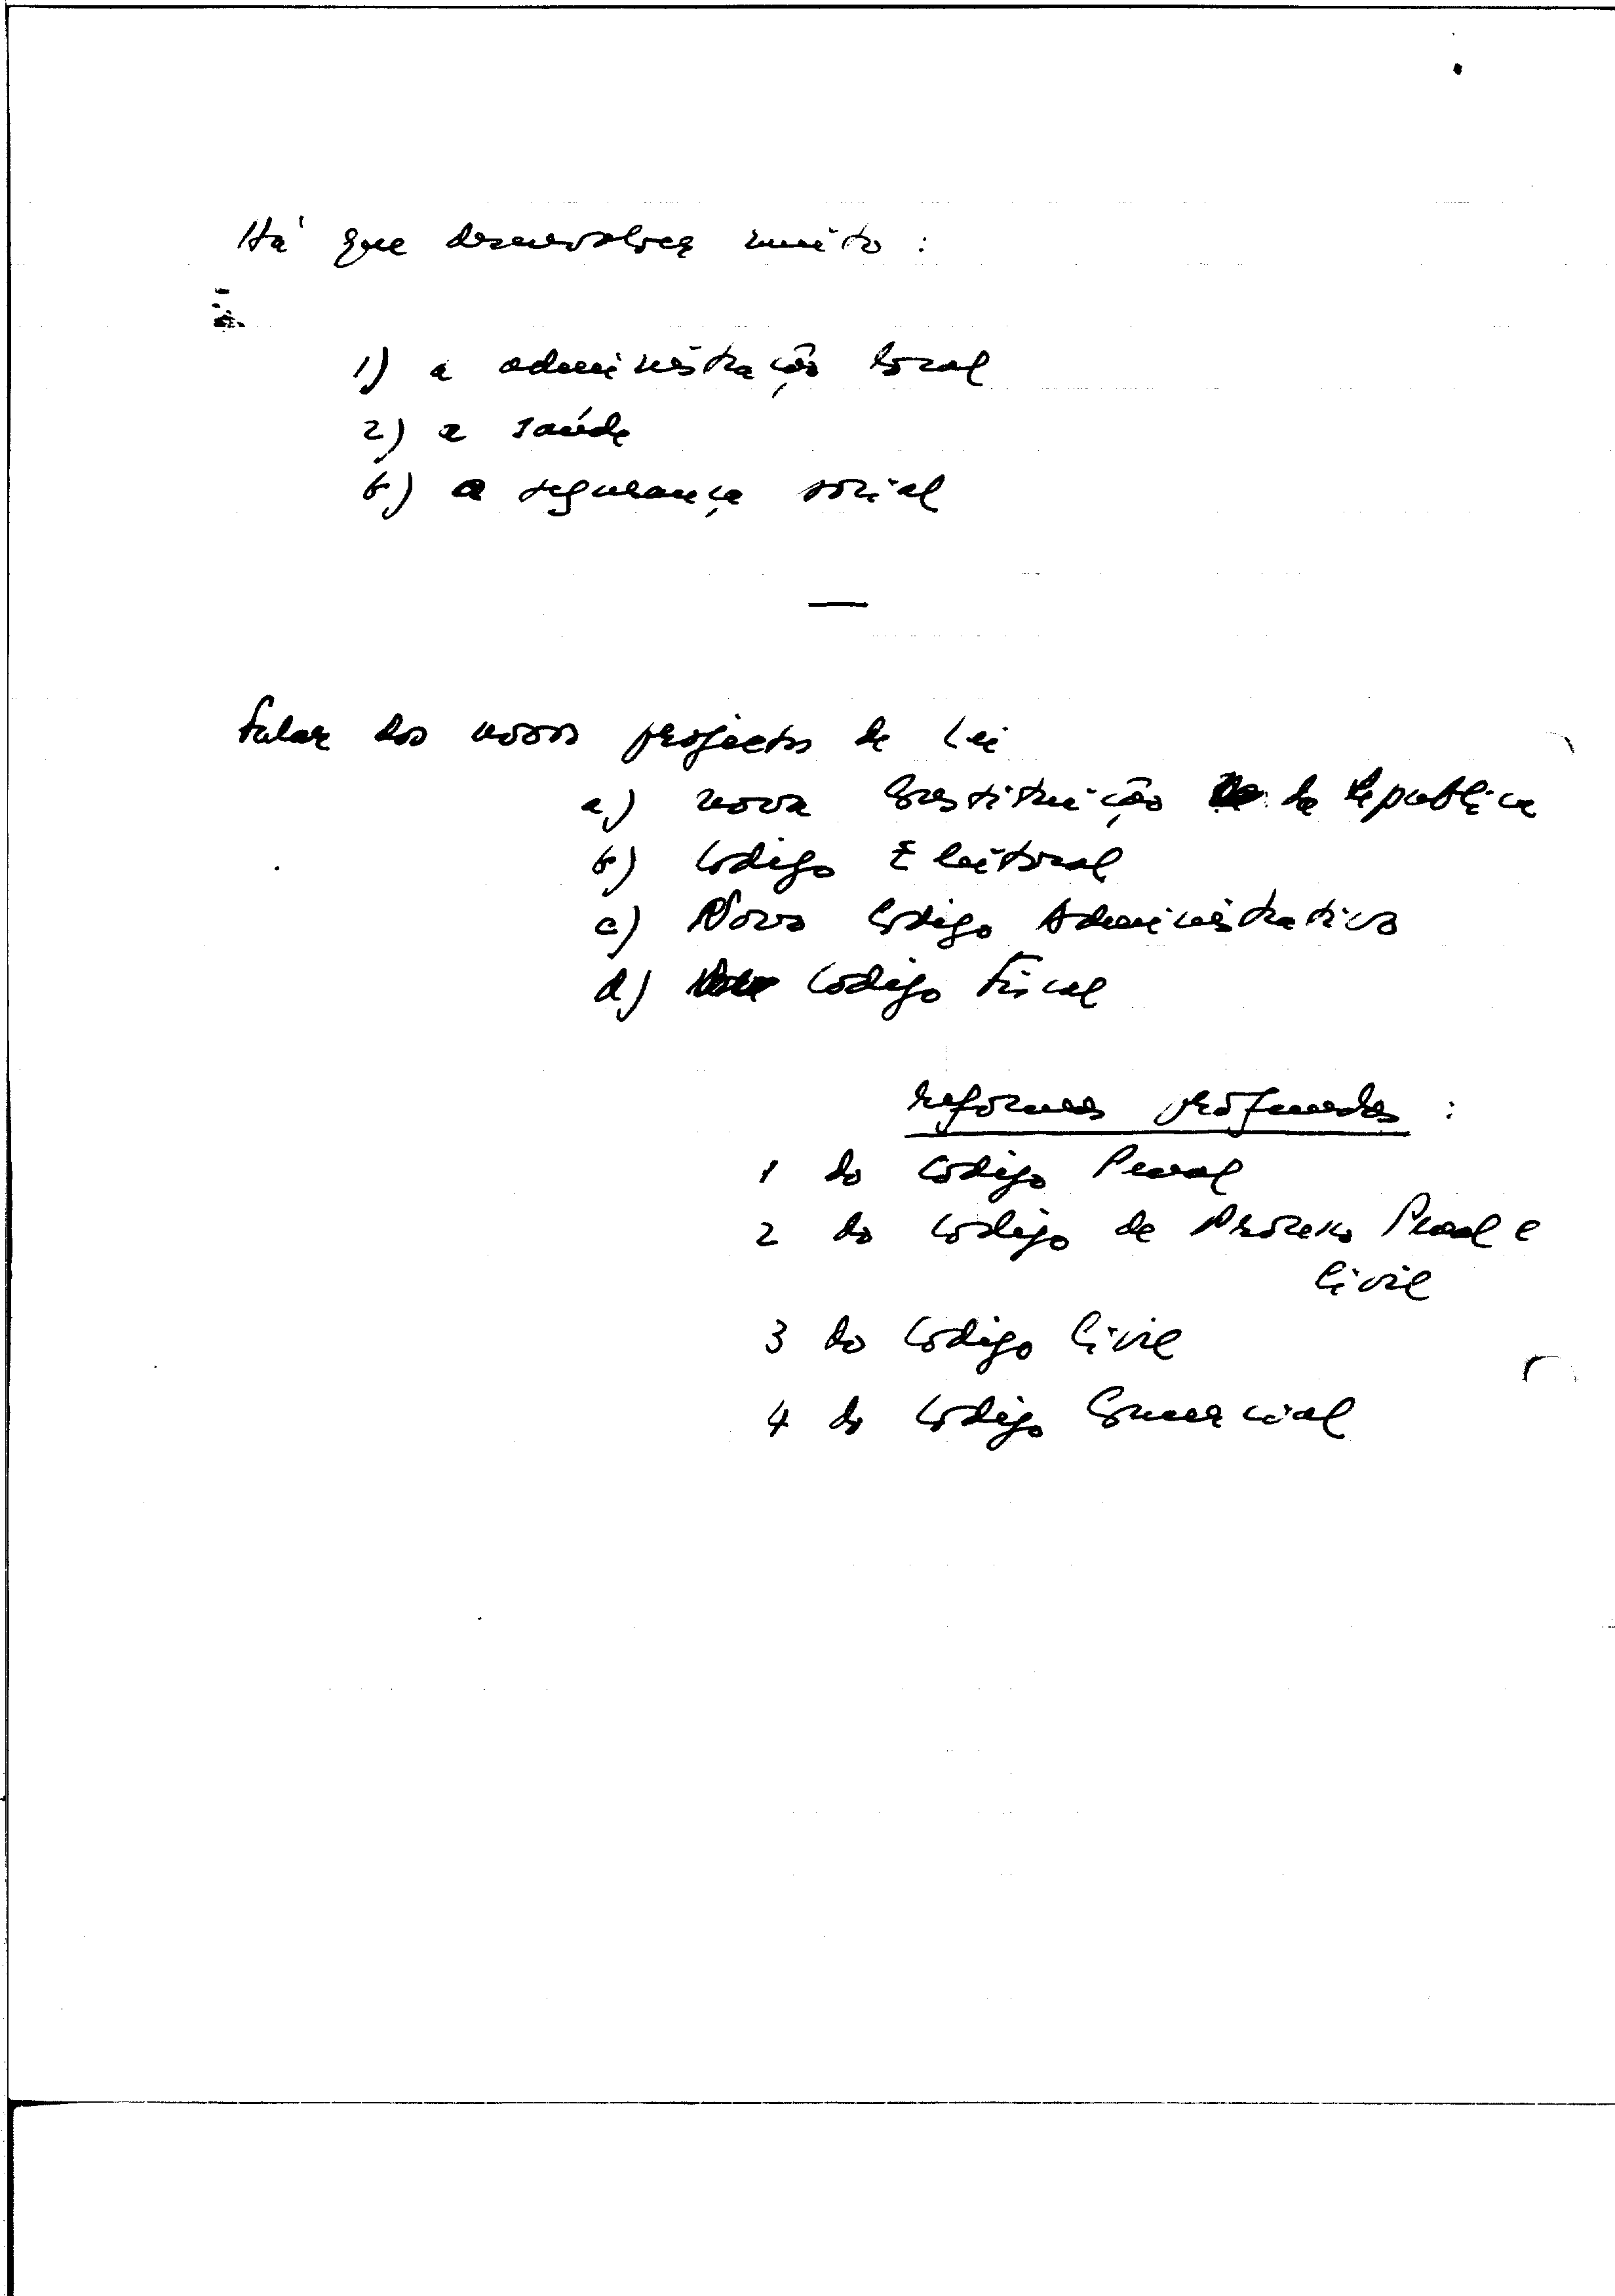 Há que desenvolver muito :
1) a administração local
2) a saúde
b) a segurança social
—
Falar dos novos projectos de Lei
a) nova Constituição da Republica
b) Codigo Eleitoral
c) Novo Codigo Administrativo
d) Codigo Fiscal
reformas profundas :
1 do Codigo Penal
2 do Codigo de Processo Penal e
Civil
3 do Codigo Civil
4 do Codigo Comercial